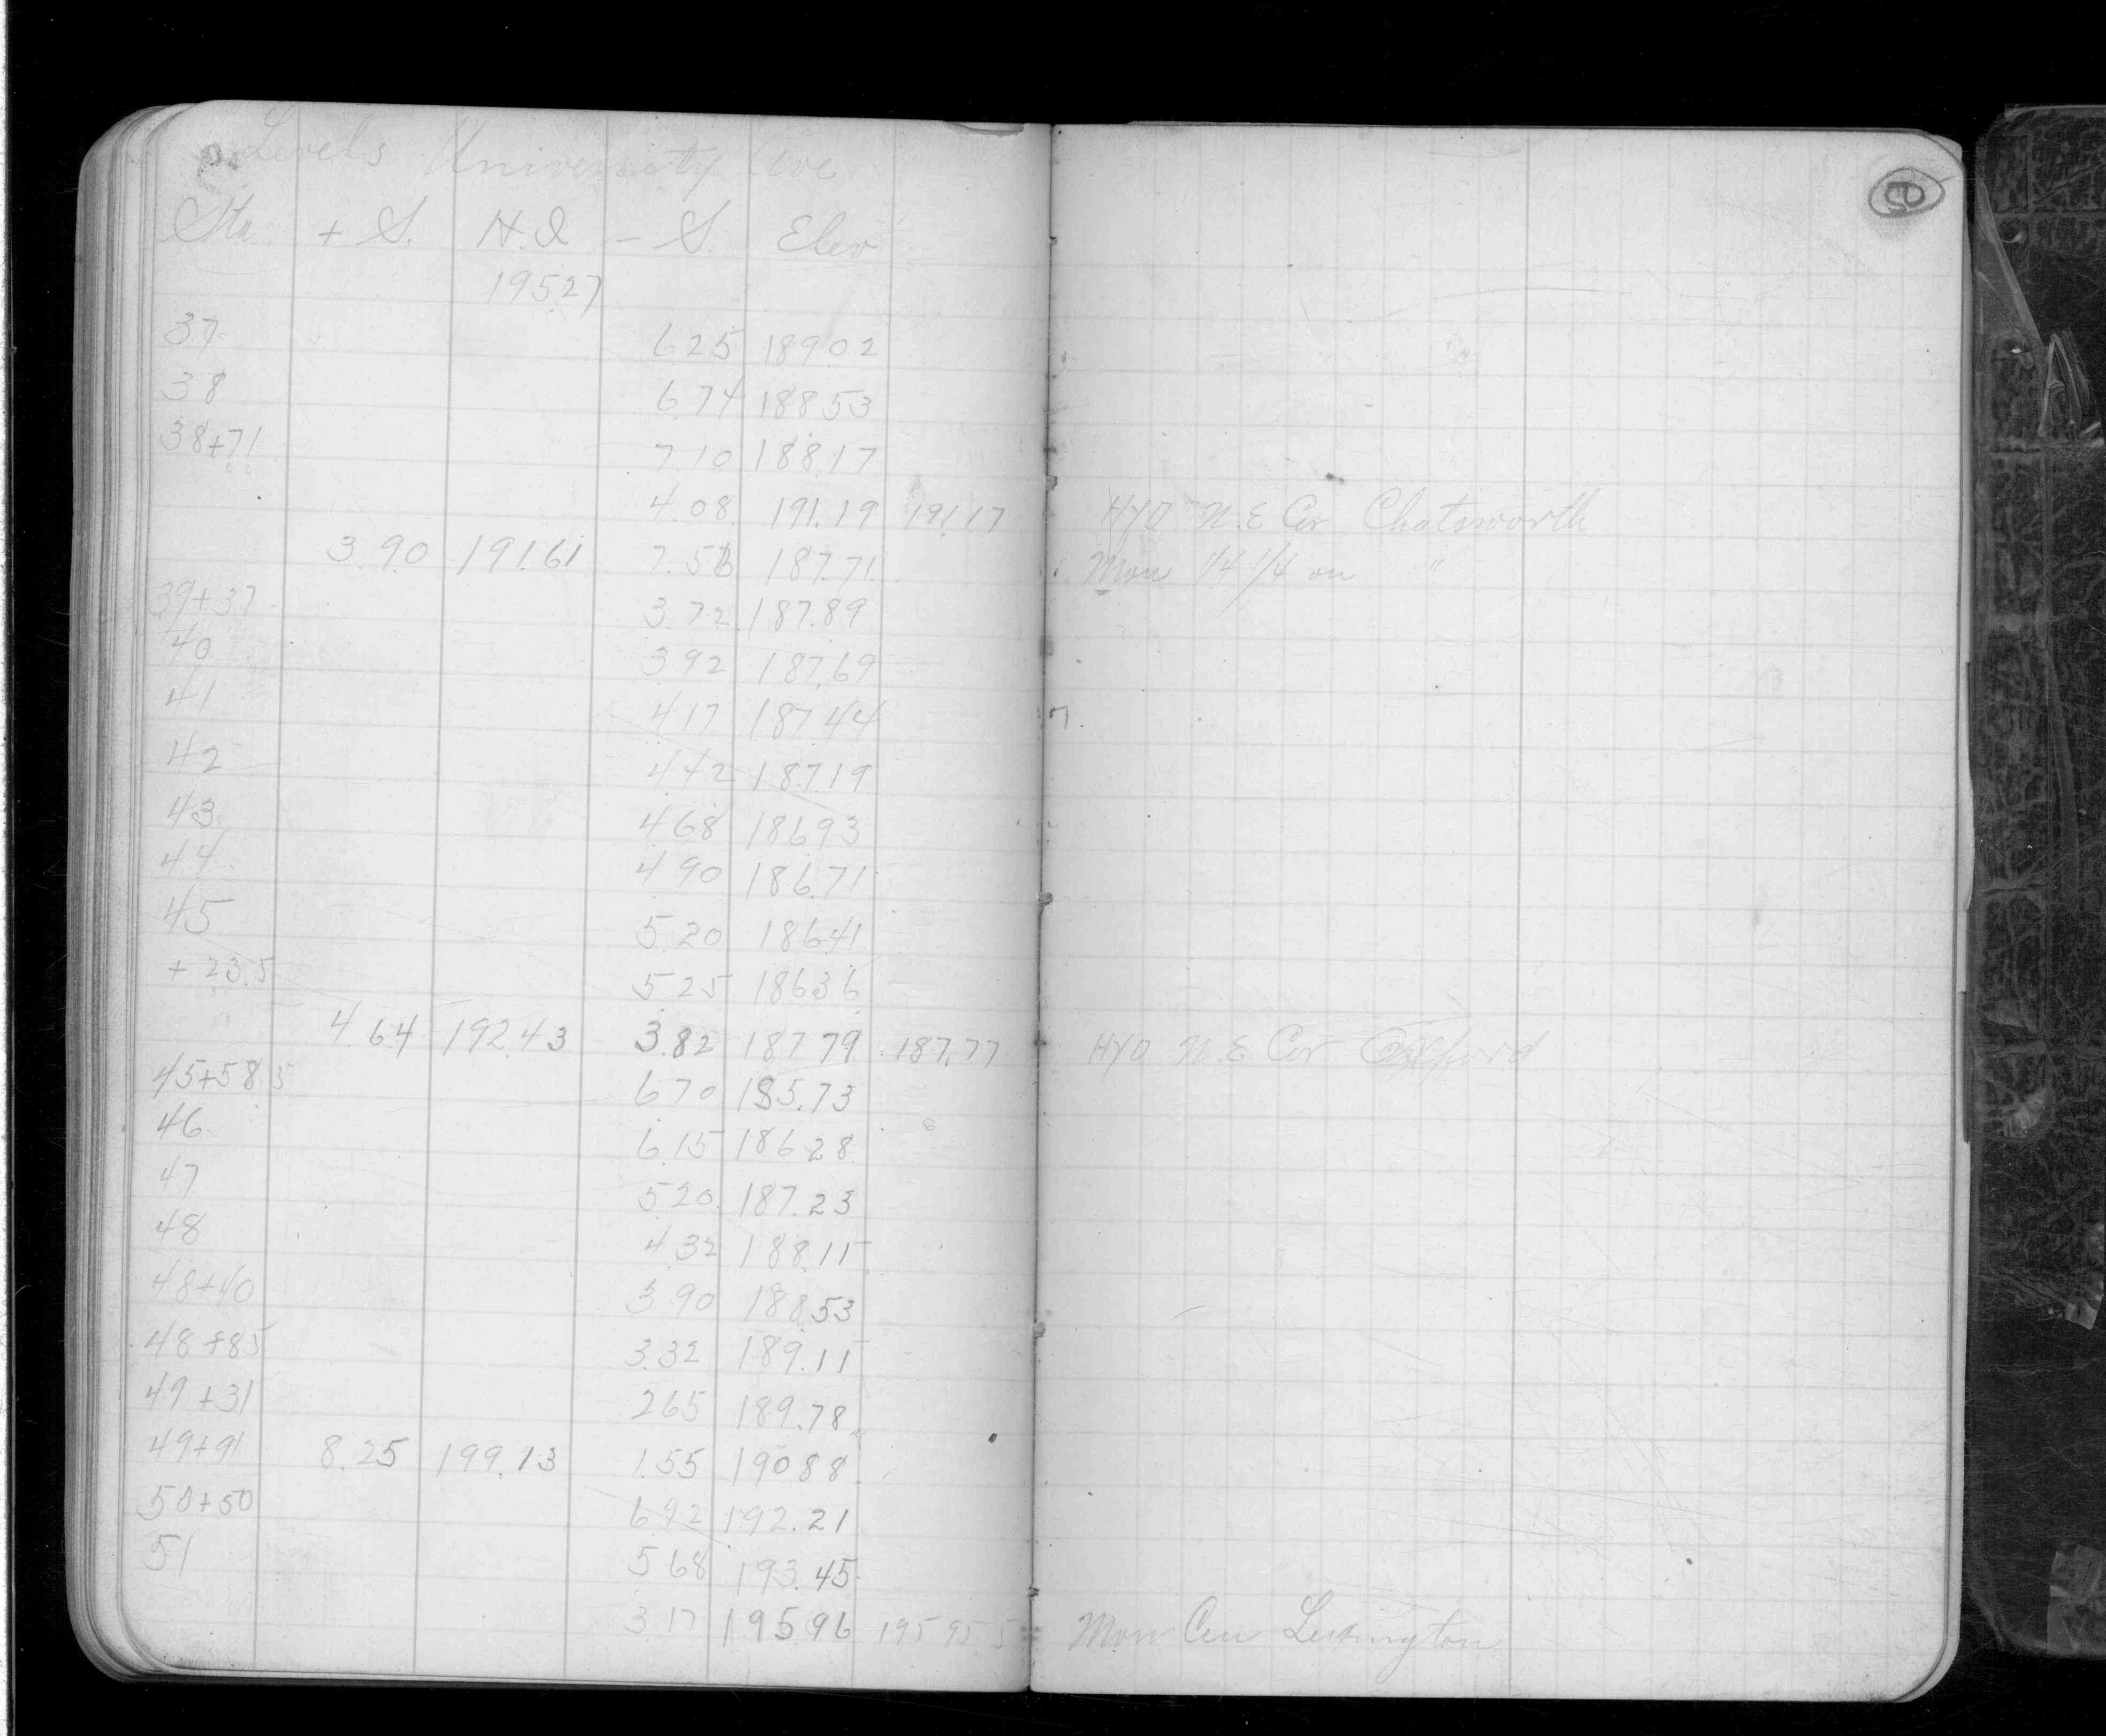 9
Levels University Ave
Sta + S. H.I - S. Elev
195.27
37 6.25 189.02
38 6.74 188.53
38+71 7.10 188.17
4.08 191.19 191.17 HYD N.E Cor Chatsworth
3.90 191.61 7.56 187.71 Mon 1/4 1/4 on "
39+37 3.72 187.89
40 3.92 187.69
41 4.17 187.44
42 4.42 187.19
43 4.68 186.93
44 4.90 186.71
45 5.20 186.41
+23.5 5.25 186.36
4.64 192.43 3.82 187.79 187.77 HYD N.E Cor Oxford
45+58.5 6.70 185.73
46 6.15 186.28
47 5.20 187.23
48 4.32 188.11
48+40 3.90 188.53
48+85 3.32 189.11
49+31 2.65 189.78
49+91 8.25 199.13 1.55 190.88
50+50 6.92 192.21
51 5.68 193.45
3.17 195.96 195.955 Mon Cen Lexington